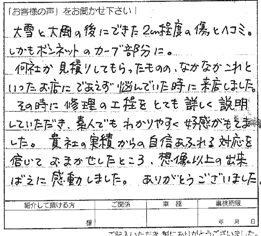 「お客様の声」をお聞かせ下さい!
大雪と大風の後にできた2cm程度の傷とヘコミ。
しかもボンネットのカーブ部分に。
何社か見積りしてもらったものの、なかなかこれと
いったお店にであえず悩んでいた時に来店しました。
その時に修理の工程をとても詳しく説明
していただき、素人でもわかりやすく好感がもてま
した。貴社の実績からの自信あふれる対応を
信じておまかせしたところ、想像以上の出来
ばえに感動しました。ありがとうございました。
紹介して頂ける方 ご関係 車種 車検期限
様 年 月 日
ご記入いただき誠にありがとうございました。